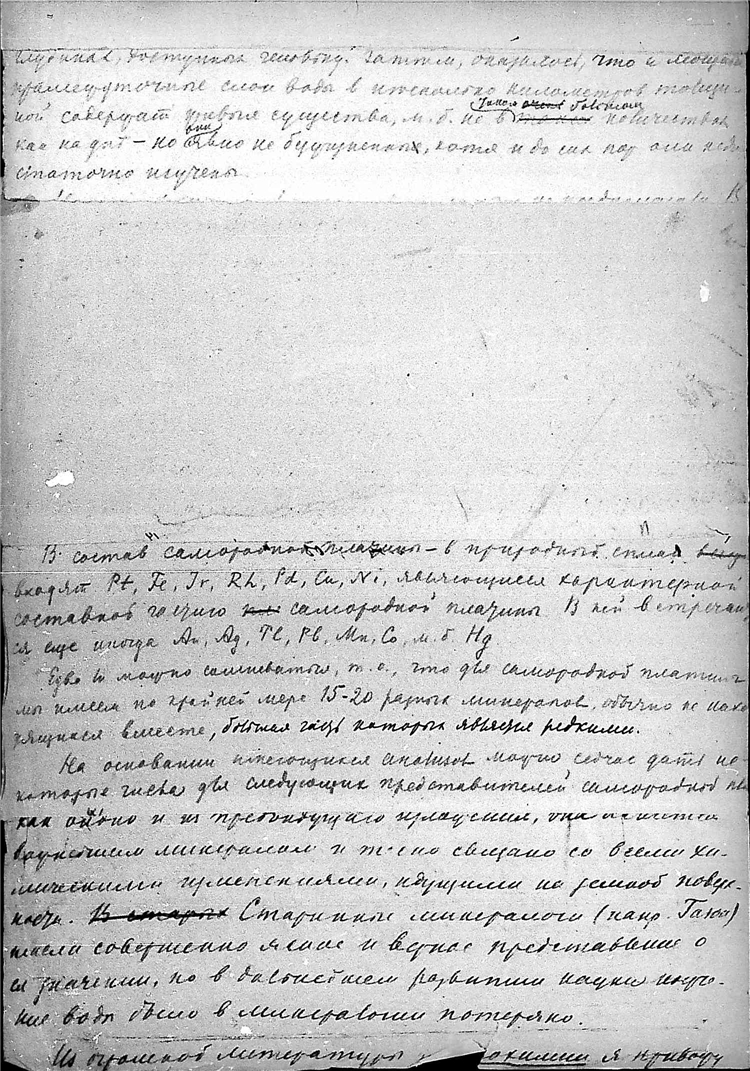 глубинах, доступных человеку. Затем, оказалось, что и мощные
промежуточные слои воды в несколько километров толщи-
ной содержат живые существа, м.б. не в таком большом количествах
как на дне – но они явно не безжизненны, хотя и до сих пор они недо-
статочно изучены
В состав "самородной платины" – в природный сплав
входят Pt, Fe, Ir, Rh, Pd, Cu, Ni, являющиеся характерной
составной частью самородной платины. В ней встречают-
ся еще иногда Au, Ag, Tl, Pb, Mn, Co, м.б. Hg
Едва ли можно сомневаться, т.о., что для самородной платины
мы имеем по крайней мере 15-20 разных минералов, обычно не нахо-
дящихся вместе, большая часть которых является редкими.
На основании имеющихся анализов можно сейчас дать не-
которые числа для следующих представителей самородной
как видно и из предыдущего изложения, она является
важнейшим минералом и тесно связано со всеми хи-
мическими изменениями, идущими на земной поверх-
ности. В старых Старинные минералоги (напр. Гаюи)
имели совершенно ясное и верное представление о
ея значении, но в дальнейшем развитии науки изуче-
ние воды было в минералогии потеряно.
Из огромной литературы я привожу